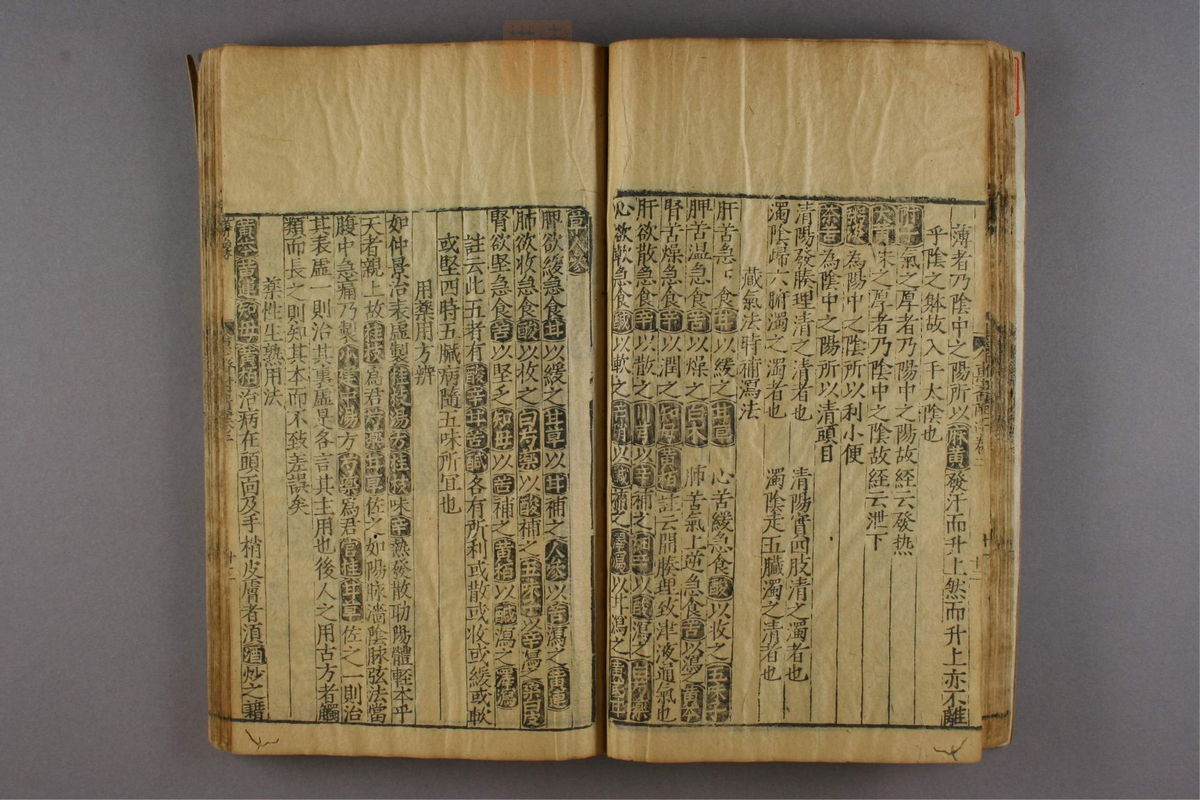 薄者乃陰中之陽所以麻黃發汗而升上然而升上亦不離
乎陰之體故入手太陰也
附子氣之厚者乃陽中之陽故経云發熱
大黃味之厚者乃陰中之陰故経云泄下
為陽中之陰所以利小便
茶苦為陰中之陽所以清頭目
清陽發腠理清之清者也 清陽實四肢清之濁者也
濁陰歸六腑濁之濁者也 濁陰走五臟濁之清者也
藏氣法時補瀉法
肝苦急急食甘以緩之甘草 心苦緩急食酸以收之五味子
脾苦濕急食苦以燥之白朮 肺苦氣上逆急食苦以瀉之黃芩
腎苦燥急食辛以潤之知母黃栢註云開腠理致津液通氣也
肝欲散急食辛以散之川芎以辛補之細辛以酸瀉之白芍藥
心欲軟急食鹹以軟之芒硝以鹹補之澤瀉以甘瀉之黃芪甘
草人參
脾欲緩急食甘以緩之甘草以甘補之人參以苦瀉之黃連
肺欲收急食酸以收之白芍藥以酸補之五味子以辛瀉之桑白皮
腎欲堅急食苦以堅之知母以苦補之黃栢以鹹瀉之澤瀉
註云此五者有酸辛甘苦鹹各有所利或散或收或緩或軟
或堅四時五臟病隨五味所宜也
用藥用方辨
如仲景治表虛製桂枝湯方桂枝味辛熱發散助陽體輕本乎
天者親上故桂枝為君芍藥甘草佐之如陽脉濇陰脉弦法當
腹中急痛乃製小建中湯方芍藥為君官桂甘草佐之一則治
其表虛一則治其裏虛是各言其主用也後人之用古方者觸
類而長之則知其本而不致差誤矣
藥性生熟用法
黃芩黃連知母黃栢治病在頭面及手梢皮膚者須酒炒之藉